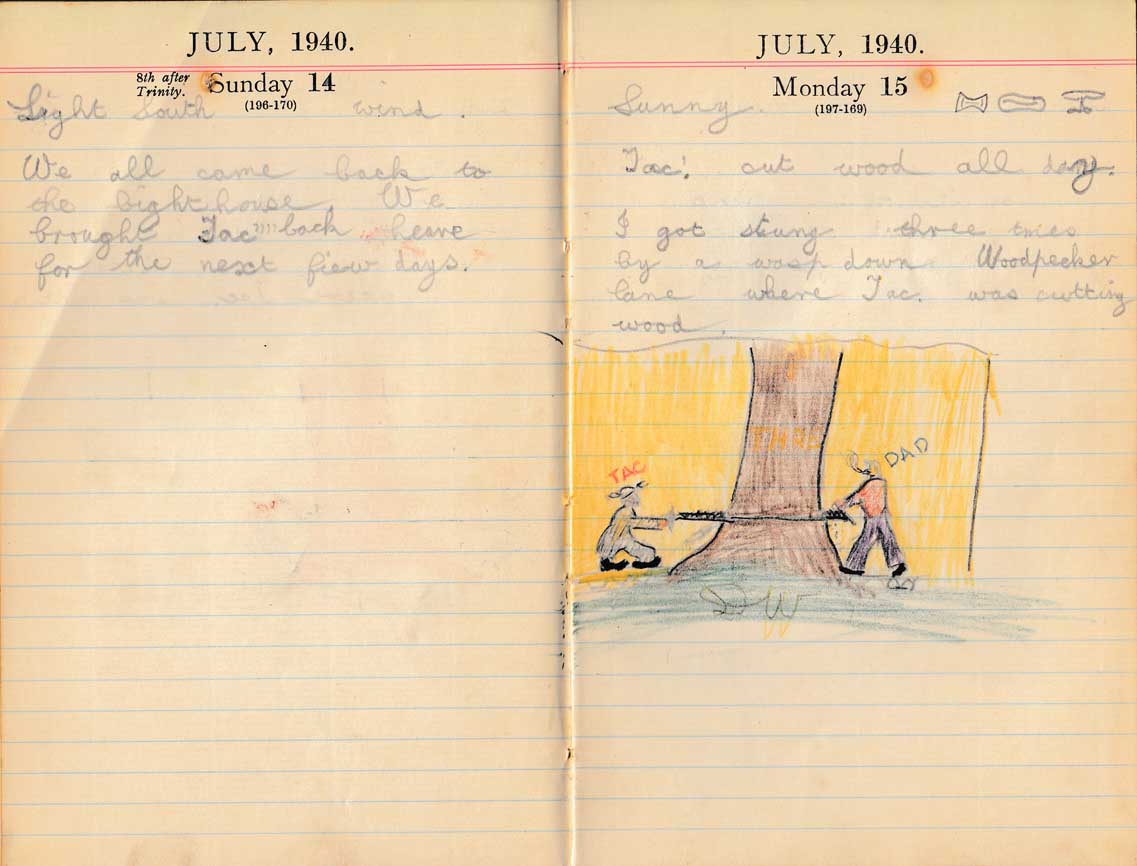 JULY, 1940.
8th after Trinity. Sunday 14
(196-170)
Light South wind.
We all came back to
the lighthouse. We
brought Tac"" back heare
for the next fiew days.
JULY, 1940.
Monday 15
(197-169)
Sunny.
Tac! cut wood all day.
I got stung three tries
by a wasp down Woodpecker
lane where Tac. was cutting
wood.
TAC
DAD
DW